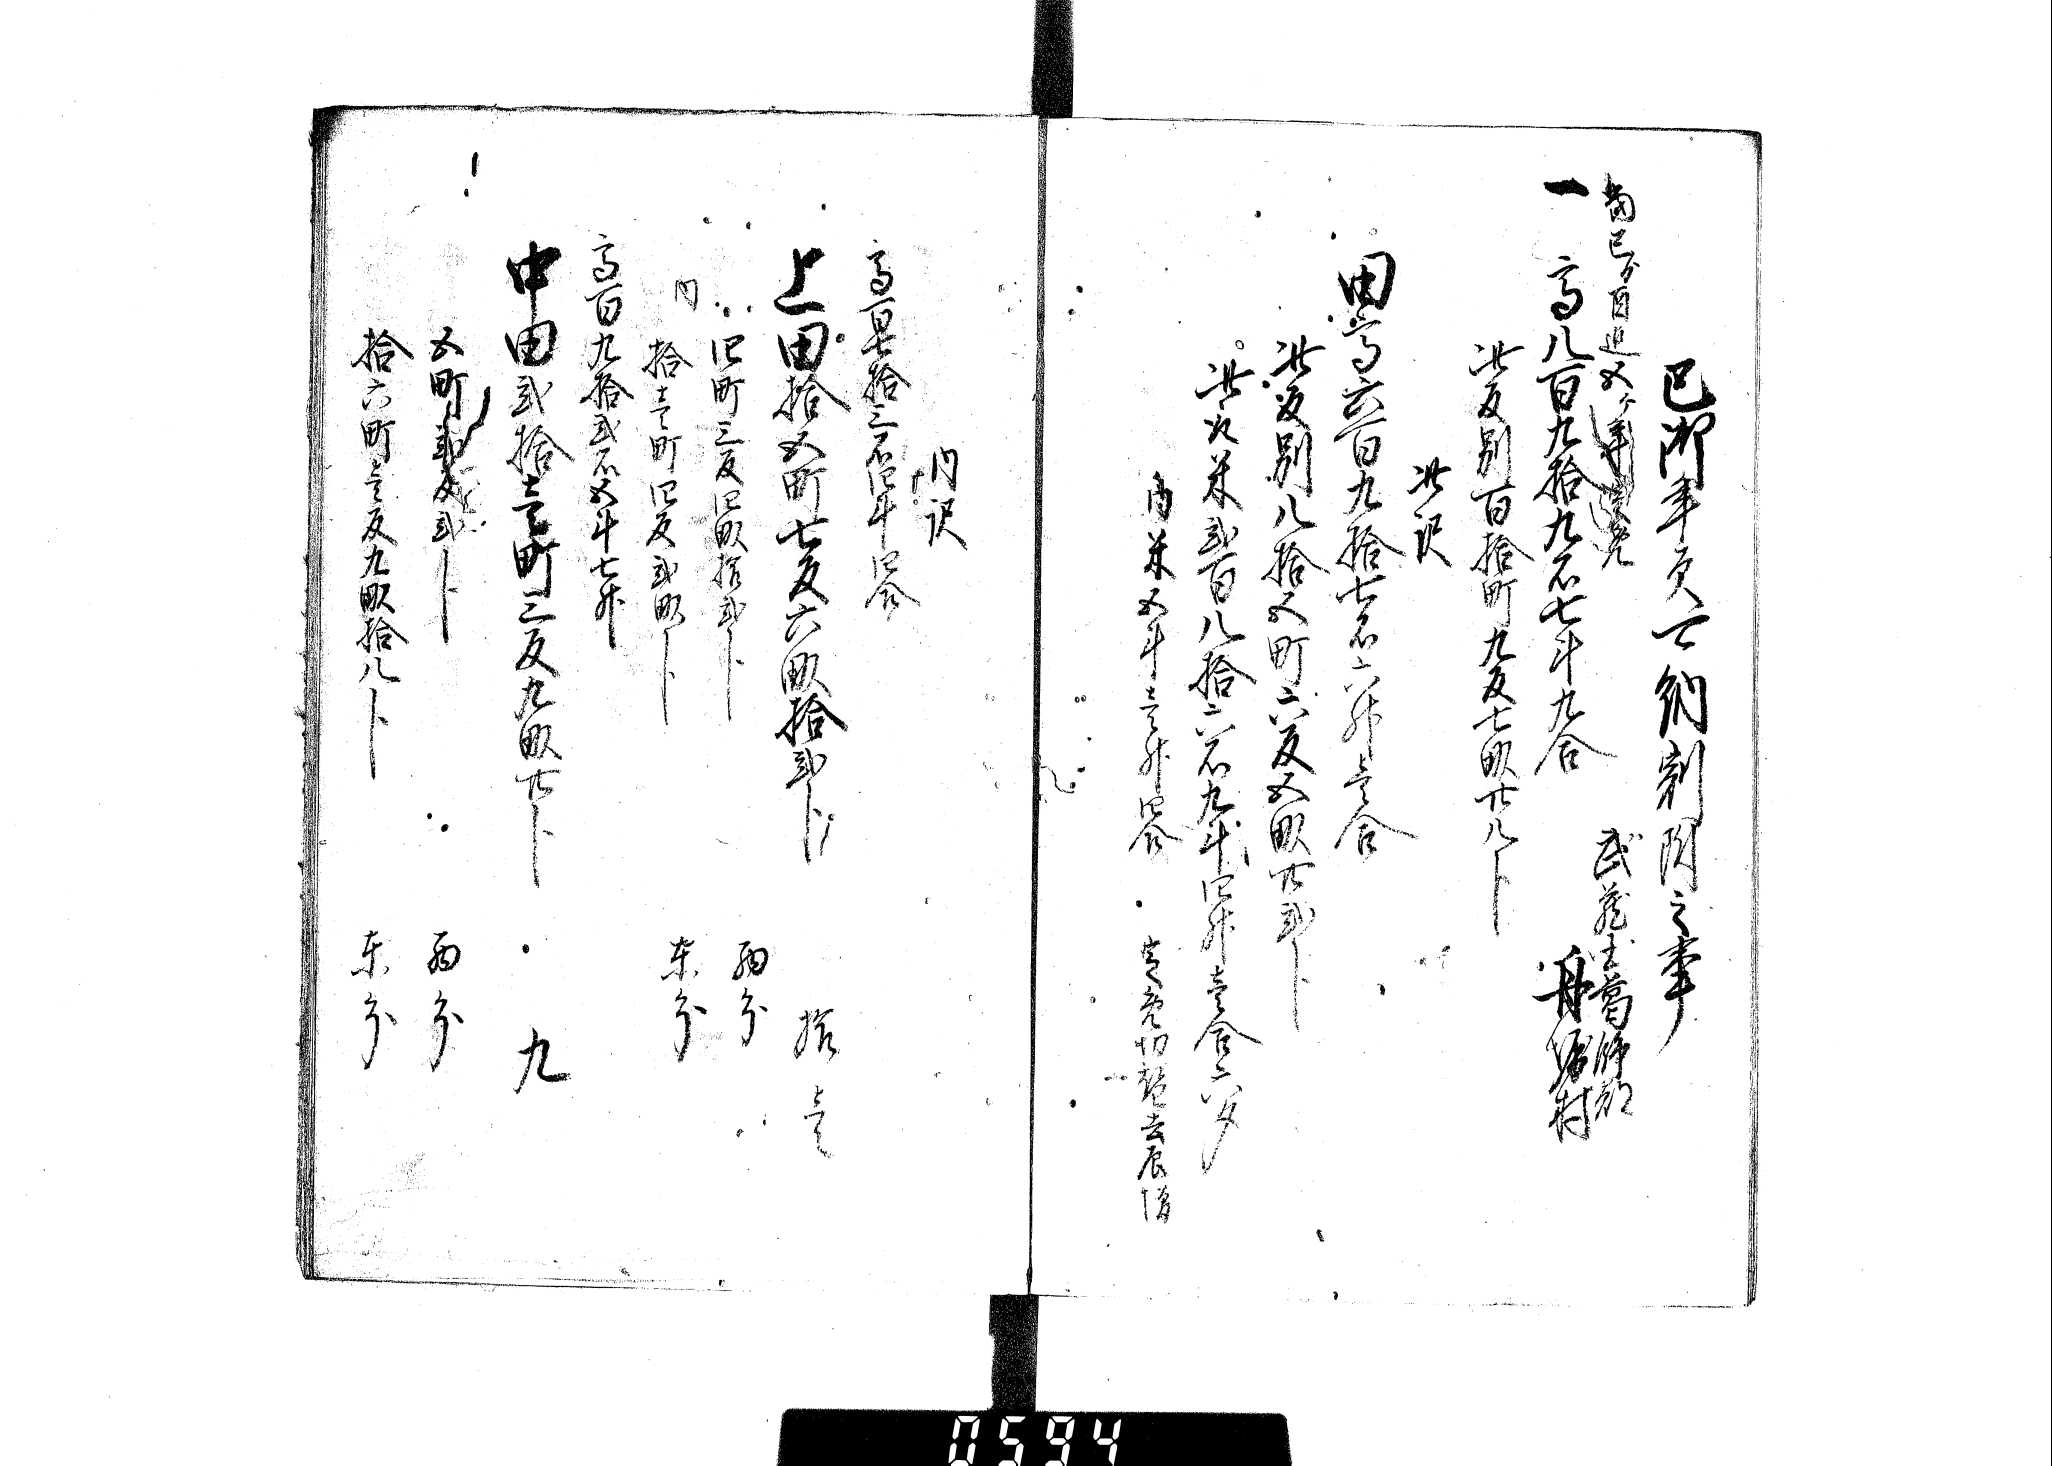 巳御年貢可納割附之事
当巳ゟ酉迄五ヶ年定免
武蔵国葛飾郡
舟堀村
一 高八百九拾九石七斗九合
此反別百拾町九反七畝廿八卜
此訳
田高六百九拾七石六升壱合
此反別八拾五町六反五畝廿弐卜
此取米弐百八拾六石九斗四升壱合六夕
内米五斗壱升四合 定免切替去辰増
内訳
高百七拾三石四斗四合
上田拾五町七反六畝拾弐卜 拾壱
四町三反四畝拾弐卜 西分
内
拾壱町四反弐畝卜 東分
高百九拾弐石五斗七升
中田弐拾壱町三反九畝廿卜 九
五町弐反弐卜 西分
拾六町壱反九畝拾八卜 東分
0594